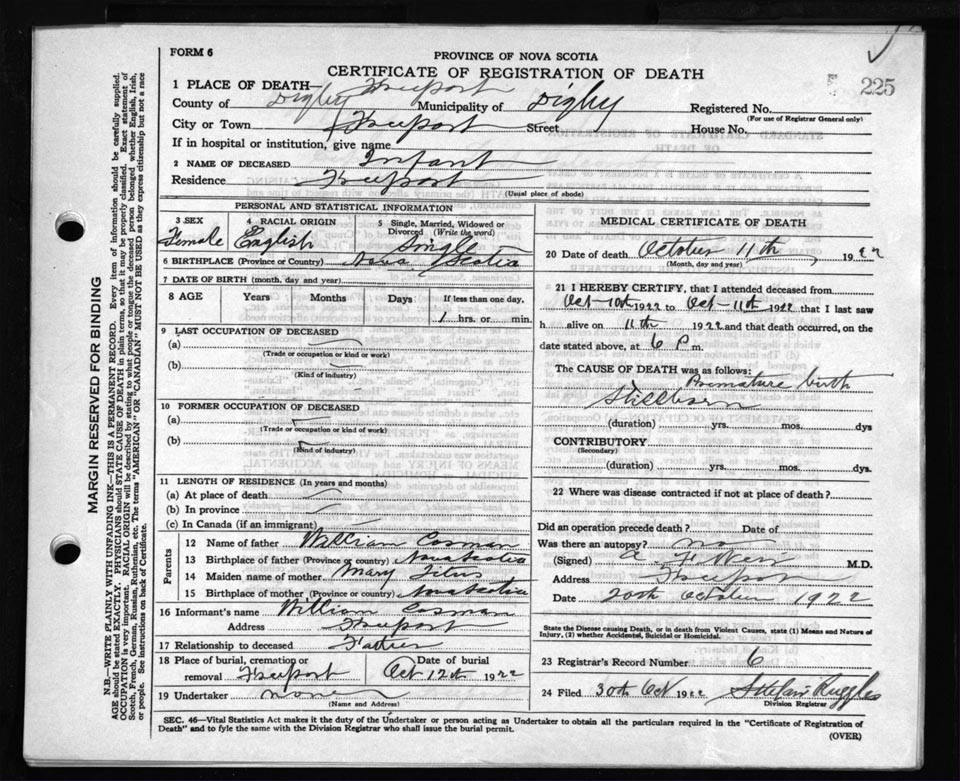 FORM 6
PROVINCE OF NOVA SCOTIA
CERTIFICATE OF REGISTRATION OF DEATH
225
1 PLACE OF DEATH— Freeport
County of Digby Municipality of Digby
Registered No.
(For use of Registrar General only)
City or Town Freeport Street House No.
If in hospital or institution, give name
2 NAME OF DECEASED Infant
Residence Freeport
(Usual place of abode)
PERSONAL AND STATISTICAL INFORMATION
3 SEX 4 RACIAL ORIGIN 5 Single, Married, Widowed or
Divorced (Write the word)
Female English Single
6 BIRTHPLACE (Province or Country) Nova Scotia
7 DATE OF BIRTH (month, day and year)
8 AGE Years Months Days If less than one day,
1 hrs. or min.
9 LAST OCCUPATION OF DECEASED
(a)
(Trade or occupation or kind or work)
(b)
(Kind of industry)
10 FORMER OCCUPATION OF DECEASED
(a)
(Trade or occupation or kind of work)
(b)
(Kind of industry)
11 LENGTH OF RESIDENCE (In years and months)
(a) At place of death
(b) In province
(c) In Canada (if an immigrant)
Parents
12 Name of father William Cosman
13 Birthplace of father (Province or country) Nova Scotia
14 Maiden name of mother Mary Titus
15 Birthplace of mother (Province or country) Nova Scotia
16 Informant's name William Cosman
Address Freeport
17 Relationship to deceased Father
18 Place of burial, cremation or Date of burial
removal Freeport Oct 12th 1922
19 Undertaker none
(Name and Address)
MEDICAL CERTIFICATE OF DEATH
20 Date of death October 11th 1922
(Month, day and year)
21 I HEREBY CERTIFY, that I attended deceased from
Oct-10th 1922 to Oct-11th 1922 that I last saw
h alive on 11th 1922 and that death occurred, on the
date stated above, at 6 P m.
The CAUSE OF DEATH was as follows:
Premature birth
Stillborn
(duration) yrs. mos. dys
CONTRIBUTORY
(Secondary)
(duration) yrs. mos. dys.
22 Where was disease contracted if not at place of death?
Did an operation precede death? Date of
Was there an autopsy? no
(Signed) M.D.
Address Freeport
Date 20th October 1922
State the Disease causing Death, or in death from Violent Causes, state (1) Means and Nature of
Injury, (2) whether Accidental, Suicidal or Homicidal.
23 Registrar's Record Number 6
24 Filed 30th Oct 1922 Ruggles
Division Registrar
SEC. 46—Vital Statistics Act makes it the duty of the Undertaker or person acting as Undertaker to obtain all the particulars required in the "Certificate of Registration of
Death" and to fyle the same with the Division Registrar who shall issue the burial permit.
(OVER)
MARGIN RESERVED FOR BINDING
N.B.—WRITE PLAINLY WITH UNFADING INK—THIS IS A PERMANENT RECORD. Every item of information should be carefully supplied.
AGE should be stated EXACTLY. PHYSICIANS should STATE CAUSE OF DEATH in plain terms, so that it may be properly classified. Exact statement of
OCCUPATION is very important. RACIAL ORIGIN will be described by stating to what people or tongue the deceased person belonged whether English, Irish,
Scotch, French, German, Russian, Ruthenian, etc. The terms "AMERICAN" OR "CANADIAN" MUST NOT BE USED as they express citizenship but not a race
or people. See instructions on back of Certificate.